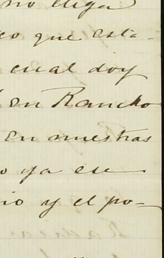 no diga
co que esta-
cual doy
en Rancho
En nuestras
o ya su
io y el po-